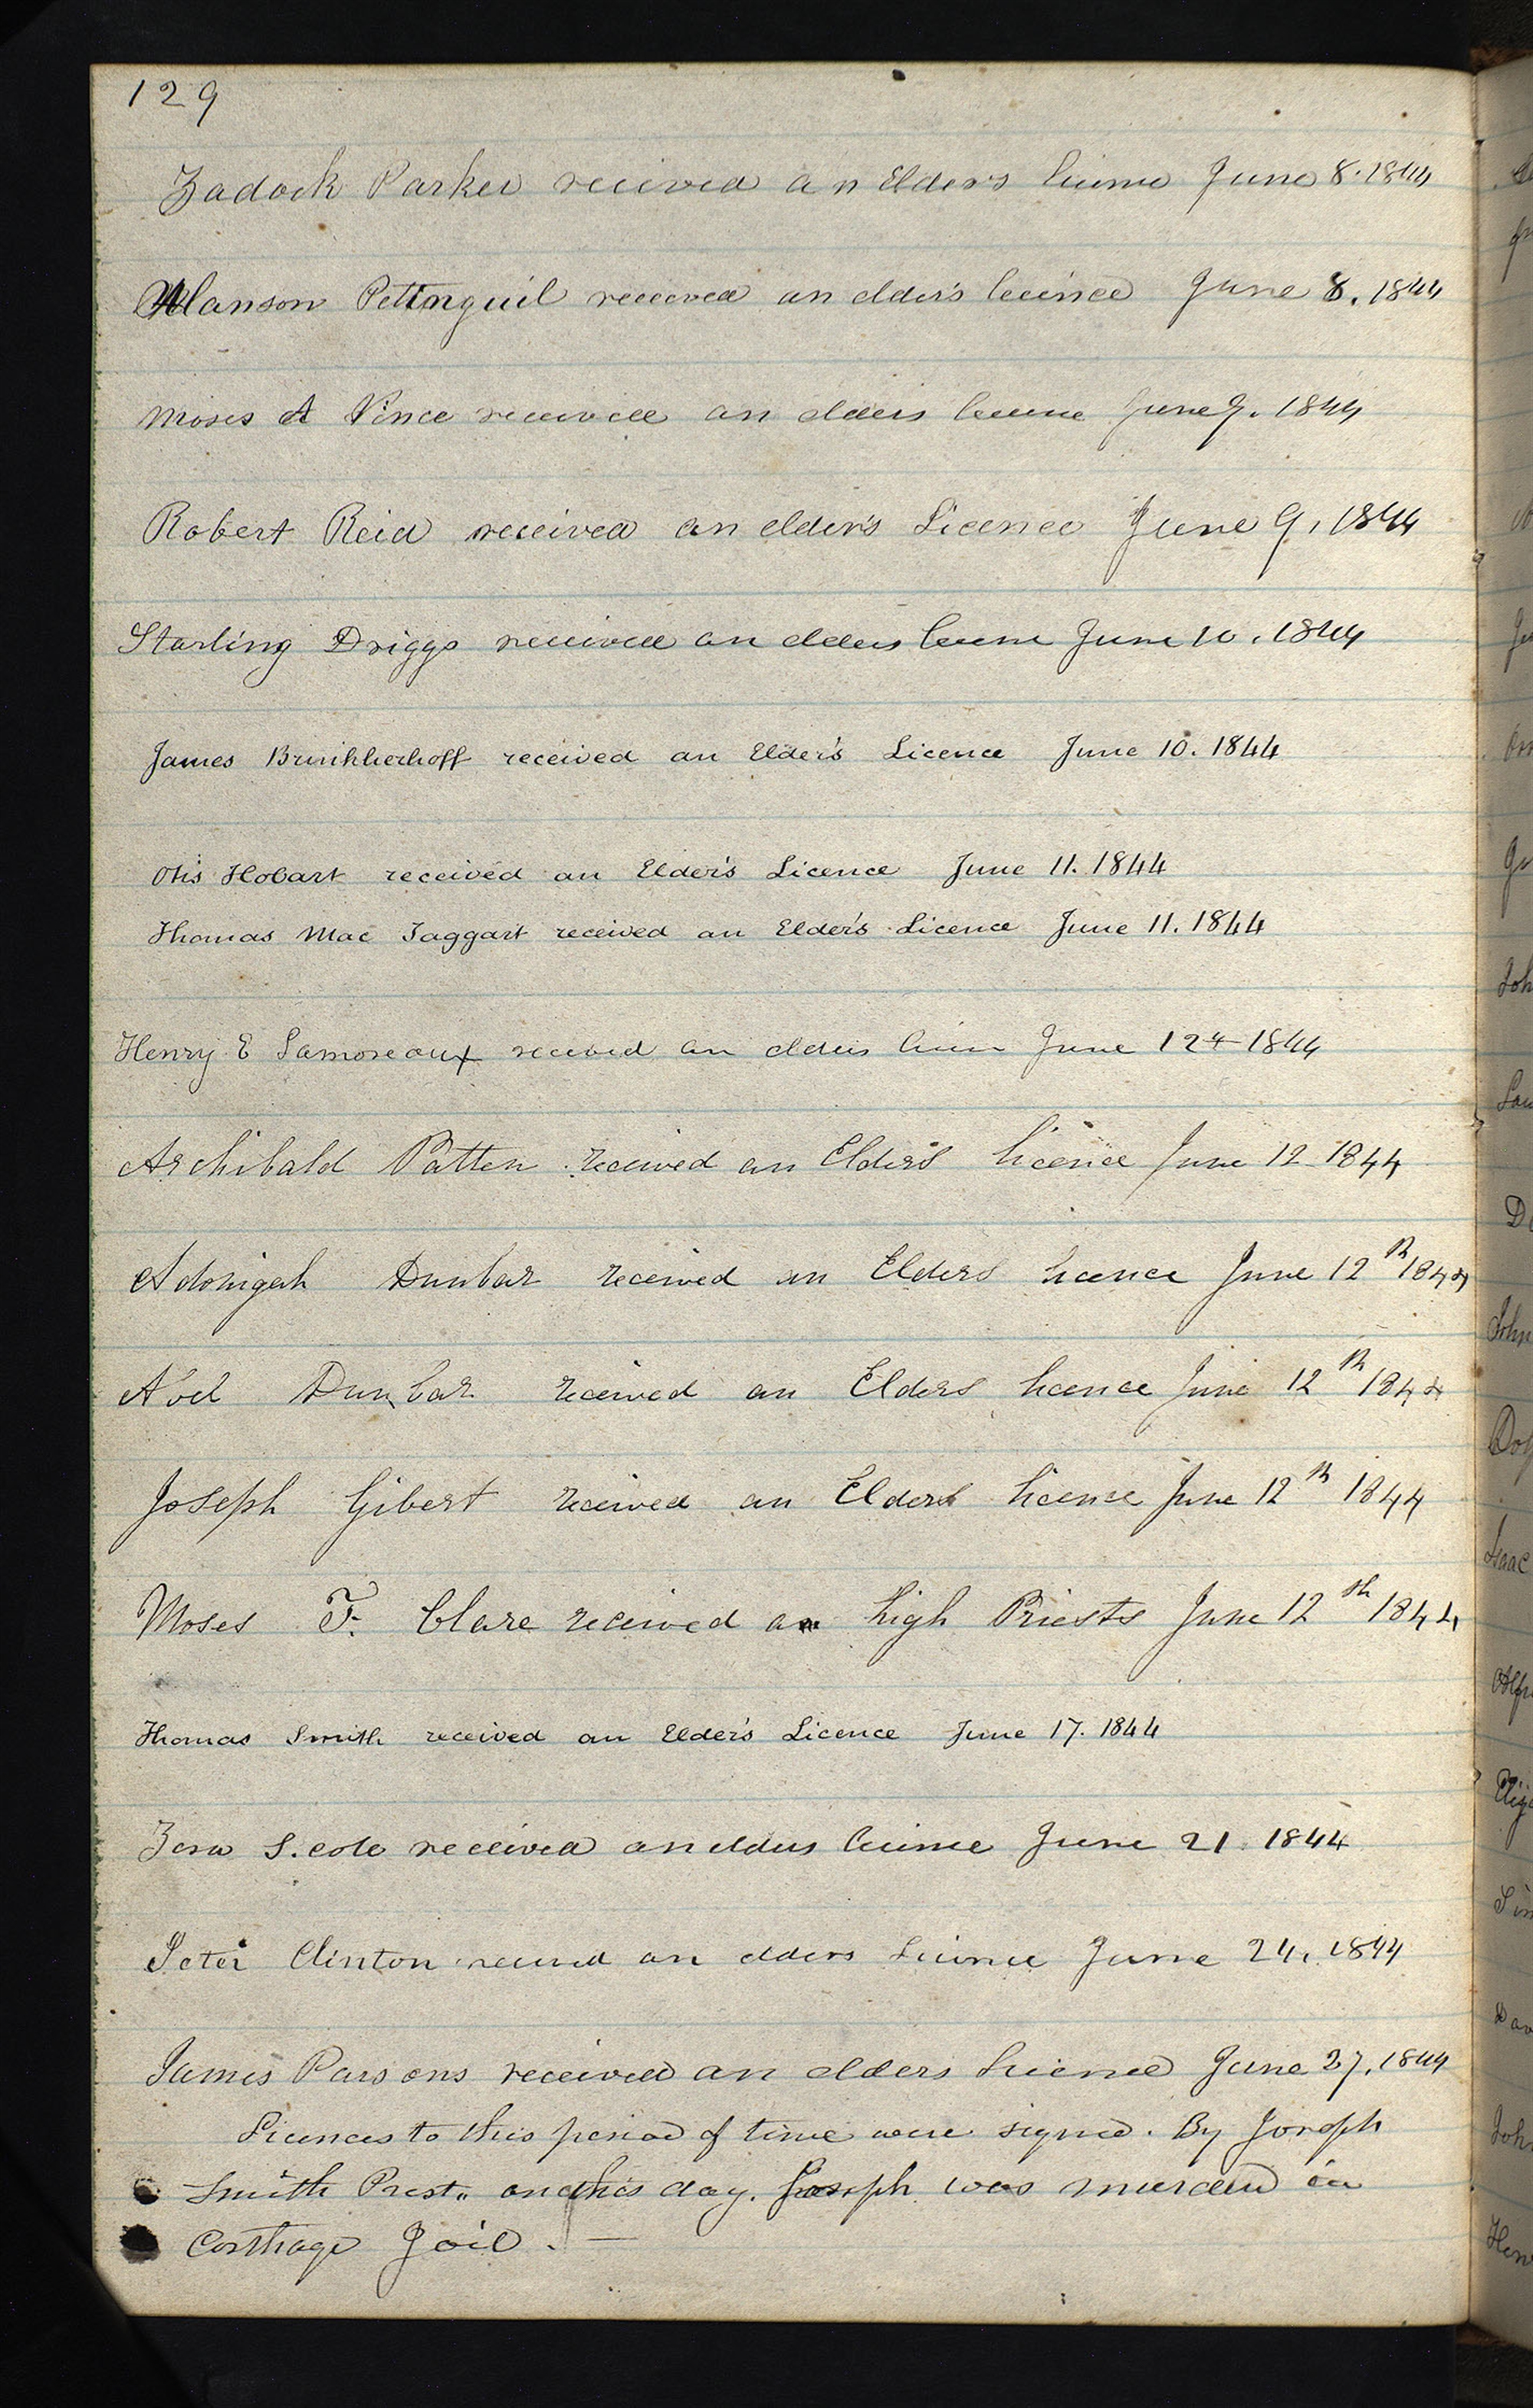 129
Zadock Parker received an Elders licence June 8. 1844
Alanson Pettinguil received an elder's licence June 8. 1844
Moses A Vince received an elders licence June 9. 1844
Robert Reid received an elder's Licence June 9, 1844
Starling Driggs received an elders licence June 10. 1844
James Brinkherhoff received an Elder's Licence June 10. 1844
Otis Hobart received an Elder's Licence June 11. 1844
Thomas Mac Taggart received an Elder's Licence June 11. 1844
Henry E Lamoreaux received an elders licen June 12th 1844
Archibald Patten received an Elders licence June 12 1844
Adonigah Dunbar received an Elders licence June 12th 1844
Abel Dunbar received an Elders licence June 12th 1844
Joseph Gibert received an Elders licence June 12th 1844
Moses F. Clare received a High Priests June 12th 1844
Thomas Smith received an Elder's Licence June 17. 1844
Zera S. Cole received an elders licence June 21. 1844
Peter Clinton received an elders Licence June 24. 1844
James Parsons received an elders Licence June 27. 1844
Licences to this period of time were signed. By Joseph
Smith Prest. on this day. Joseph was murderd in
Carthage Jail. —